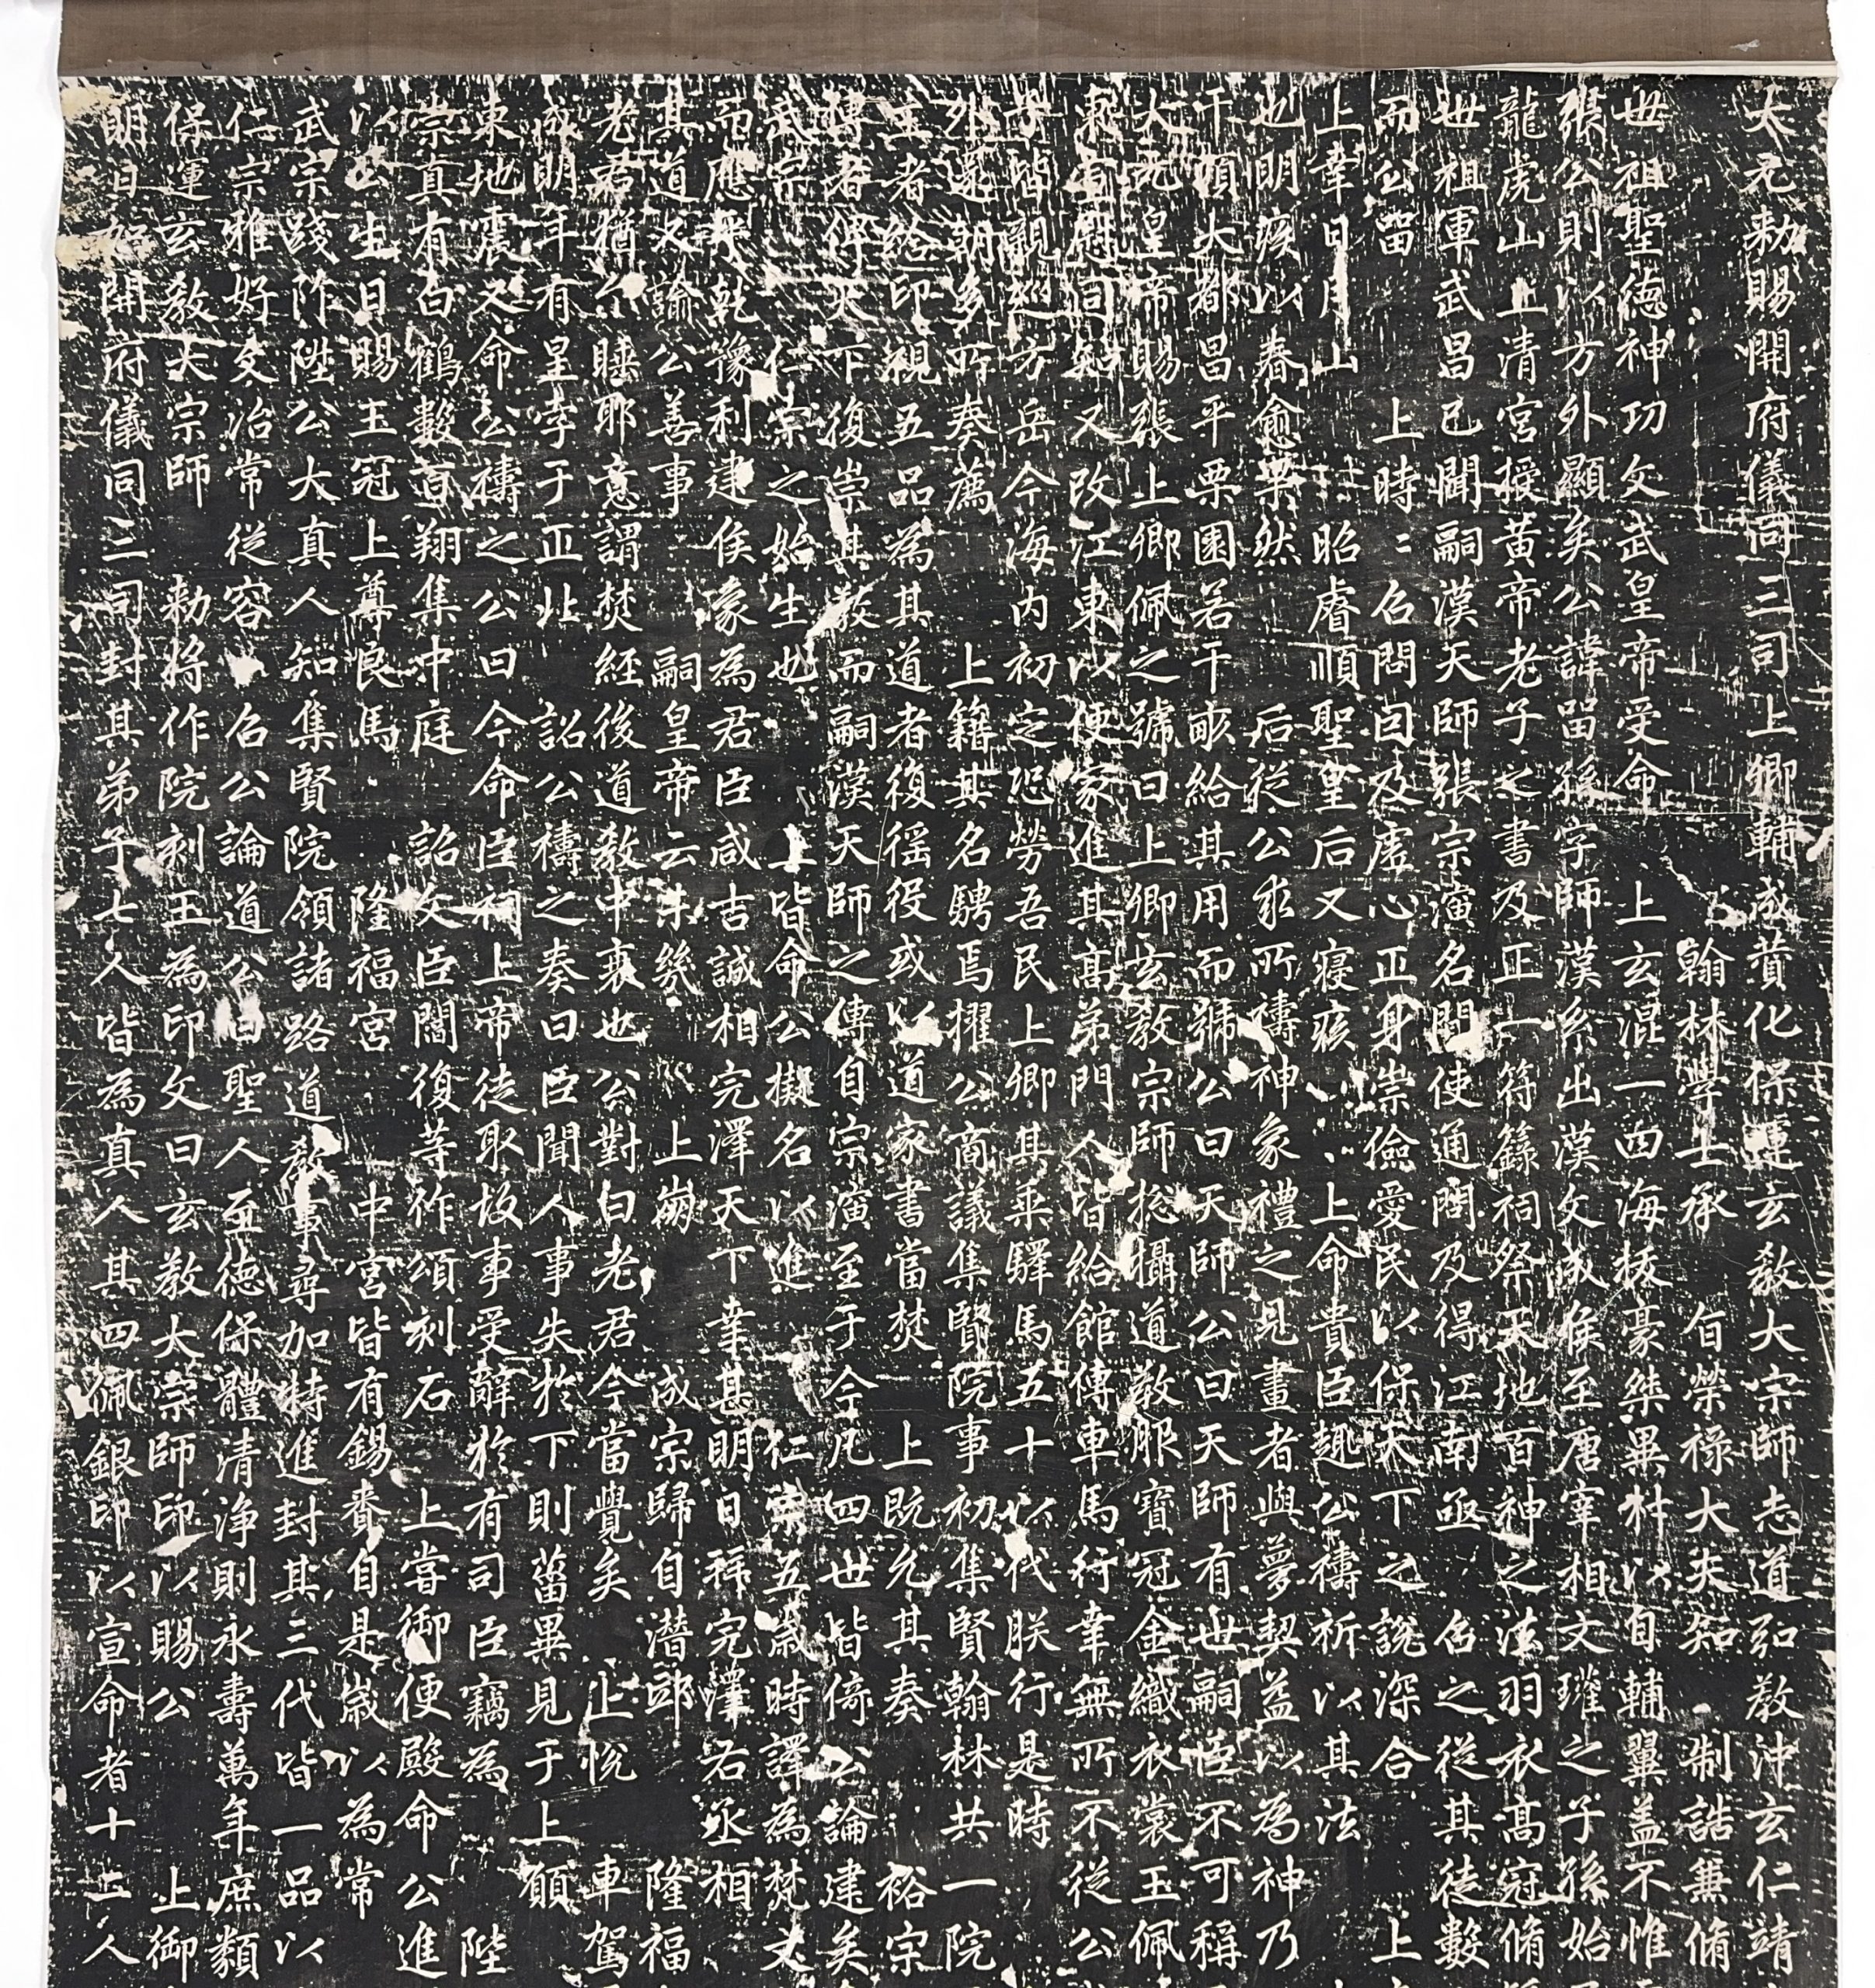 大元勑賜開府儀同三司上卿輔成賛化保運玄教大宗師志道弘教沖玄仁靖
翰林學士承旨榮祿大夫知制誥兼脩
世祖聖德神功文武皇帝受命上玄混一四海拔豪桀異材以自輔翼蓋不惟
張公則以方外顯矣公諱留孫字師漢系出漢文成侯至唐宰相文瓘之子孫始
龍虎山上清宮授黃帝老子之書及正一符籙祠祭天地百神之法羽衣高冠脩
世祖軍武昌已聞嗣漢天師張宗演名間使通問及得江南亟召之從其徒數
而公留上時〻召問因及虛心正身崇儉愛民以保天下之說深合上
上幸日月山昭睿順聖皇后又寢疾上命貴臣趣公禱祈以其法
也明疾以春愈果然后從公求所禱神象禮之見畫者與夢契益以為神乃
干頃大都昌平栗園若干畝給其用而號公曰天師公曰天師有世嗣臣不可稱
大元皇帝賜張上卿佩之號曰上卿玄教宗師総攝道教服寶冠金織衣裳玉佩
東宣慰同知又改江東以便家進其高弟門人皆給館傳車馬行幸無所不從公
子皆親巡方岳今海內初定恐勞吾民上卿其乘驛馬五十以代朕行是時
外還朝多所奏薦上籍其名騁焉擢公商議集賢院事初集賢翰林共一院
主者給印視五品為其道者復徭役或以道家書當焚上既允其奏裕宗
者俾天下復崇其教而嗣漢天師之傳自宗演至于今凡四世皆倚公論建矣
武宗仁宗之始生也上皆命公擬名以進仁宗五歲時譯為梵文
帝應乎乾豫利建侯象為君臣咸吉誠相完澤天下幸甚明日拜完澤右丞相
其道又諭公善事嗣皇帝云未幾上崩成宗歸自潛邸隆福
老君猶尒睡耶意謂焚經後道教中衰也公對曰老君今當覺矣上悅車駕
成明年有星孛于正北詔公禱之奏曰臣聞人事失於下則菑異見于上願
東地震又命公禱之公曰今命臣祠上帝徒取故事受辭於有司臣竊為陛
崇真有白鶴數百翔集中庭詔文臣閻復等作頌刻石上嘗御便殿命公進
以公生日賜玉冠上尊良馬隆福宮中宮皆有錫賚自是歲以為常
武宗踐阼陞公大真人知集賢院領諸路道教事尋加特進封其三代皆一品以
仁宗雅好文治常從容召公論道公曰聖人至德保體清淨則永壽萬年庶類
保運玄教大宗師勑將作院刻玉為印文曰玄教大宗師印以賜公上御
明日加開府儀同三司封其弟子七人皆為真人其四佩銀印以宣命者十二人